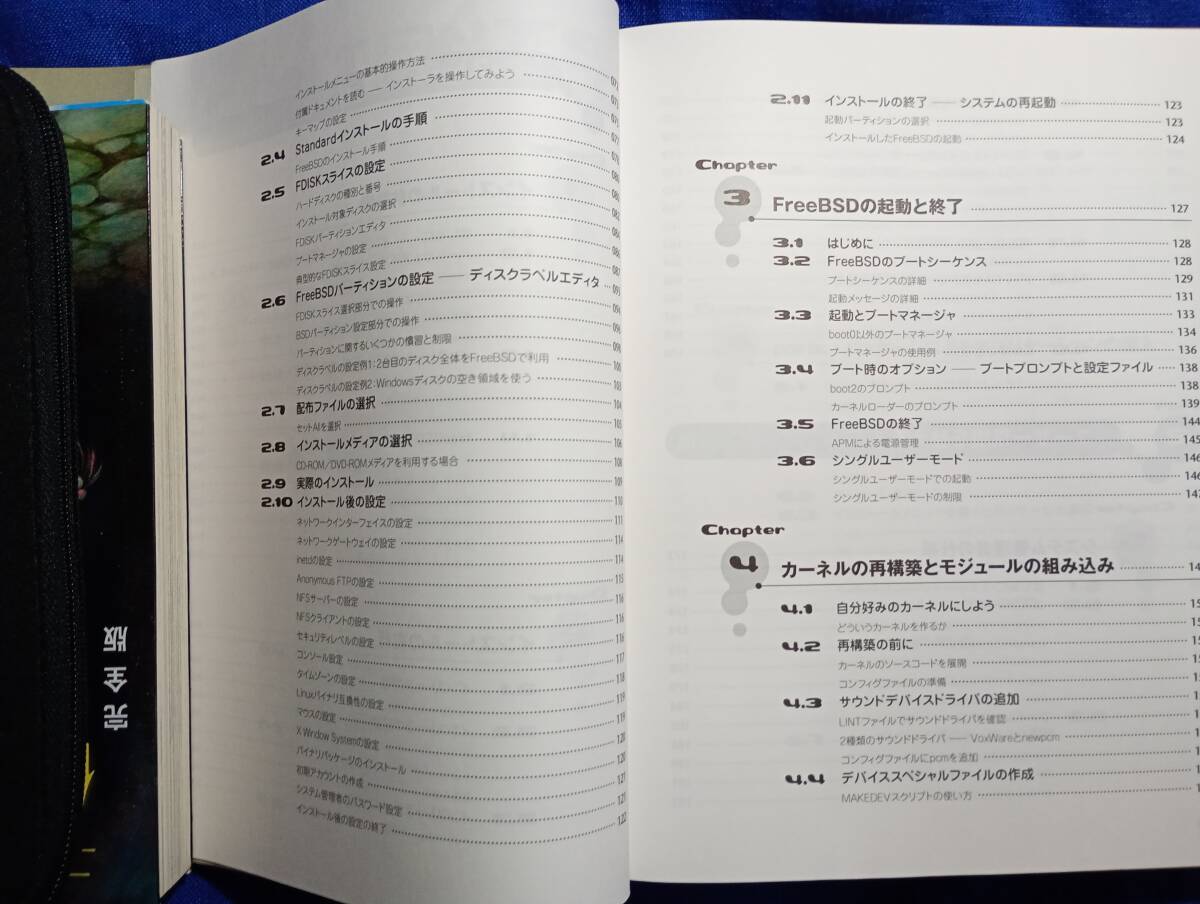 インストールメニューの基本的操作方法
付属ドキュメントを読む ── インストーラを操作してみよう
キーマップの設定
2.4 Standardインストールの手順 077
FreeBSDのインストール手順
2.5 FDISKスライスの設定
ハードディスクの種別と番号
インストール対象ディスクの選択
FDISKパーティションエディタ
ブートマネージャの設定
典型的なFDISKスライス設定
2.6 FreeBSDパーティションの設定 ── ディスクラベルエディタ
FDISKスライス選択部分での操作
BSDパーティション設定部分での操作
パーティションに関するいくつかの慣習と制限
ディスクラベルの設定例1:2台目のディスク全体をFreeBSDで利用 100
ディスクラベルの設定例2:Windowsディスクの空き領域を使う 103
2.7 配布ファイルの選択 104
セットAllを選択 105
2.8 インストールメディアの選択 106
CD-ROM/DVD-ROMメディアを利用する場合 108
2.9 実際のインストール 109
2.10 インストール後の設定 110
ネットワークインターフェイスの設定 111
ネットワークゲートウェイの設定 114
inetdの設定 114
Anonymous FTPの設定 115
NFSサーバーの設定 116
NFSクライアントの設定 116
セキュリティレベルの設定 116
コンソール設定 117
タイムゾーンの設定 118
Linuxバイナリ互換性の設定 119
マウスの設定 119
X Window Systemの設定 120
バイナリパッケージのインストール 120
初期アカウントの作成 121
システム管理者のパスワード設定 121
インストール後の設定の終了 122
2.11 インストールの終了 ── システムの再起動 123
起動パーティションの選択 123
インストールしたFreeBSDの起動 124
Chapter
3 FreeBSDの起動と終了 127
3.1 はじめに 128
3.2 FreeBSDのブートシーケンス 128
ブートシーケンスの詳細 129
起動メッセージの詳細 131
3.3 起動とブートマネージャ 133
boot0以外のブートマネージャ 134
ブートマネージャの使用例 136
3.4 ブート時のオプション ── ブートプロンプトと設定ファイル 138
boot2のプロンプト 138
カーネルローダーのプロンプト 139
3.5 FreeBSDの終了 144
APMによる電源管理 145
3.6 シングルユーザーモード 146
シングルユーザーモードでの起動 146
シングルユーザーモードの制限 147
Chapter
4 カーネルの再構築とモジュールの組み込み
4.1 自分好みのカーネルにしよう
どういうカーネルを作るか
4.2 再構築の前に
カーネルのソースコードを展開
コンフィグファイルの準備
4.3 サウンドデバイスドライバの追加
LINTファイルでサウンドドライバを確認
2種類のサウンドドライバ ── VoxWareとnewpcm
コンフィグファイルにpcmを追加
4.4 デバイススペシャルファイルの作成
MAKEDEVスクリプトの使い方
完全版